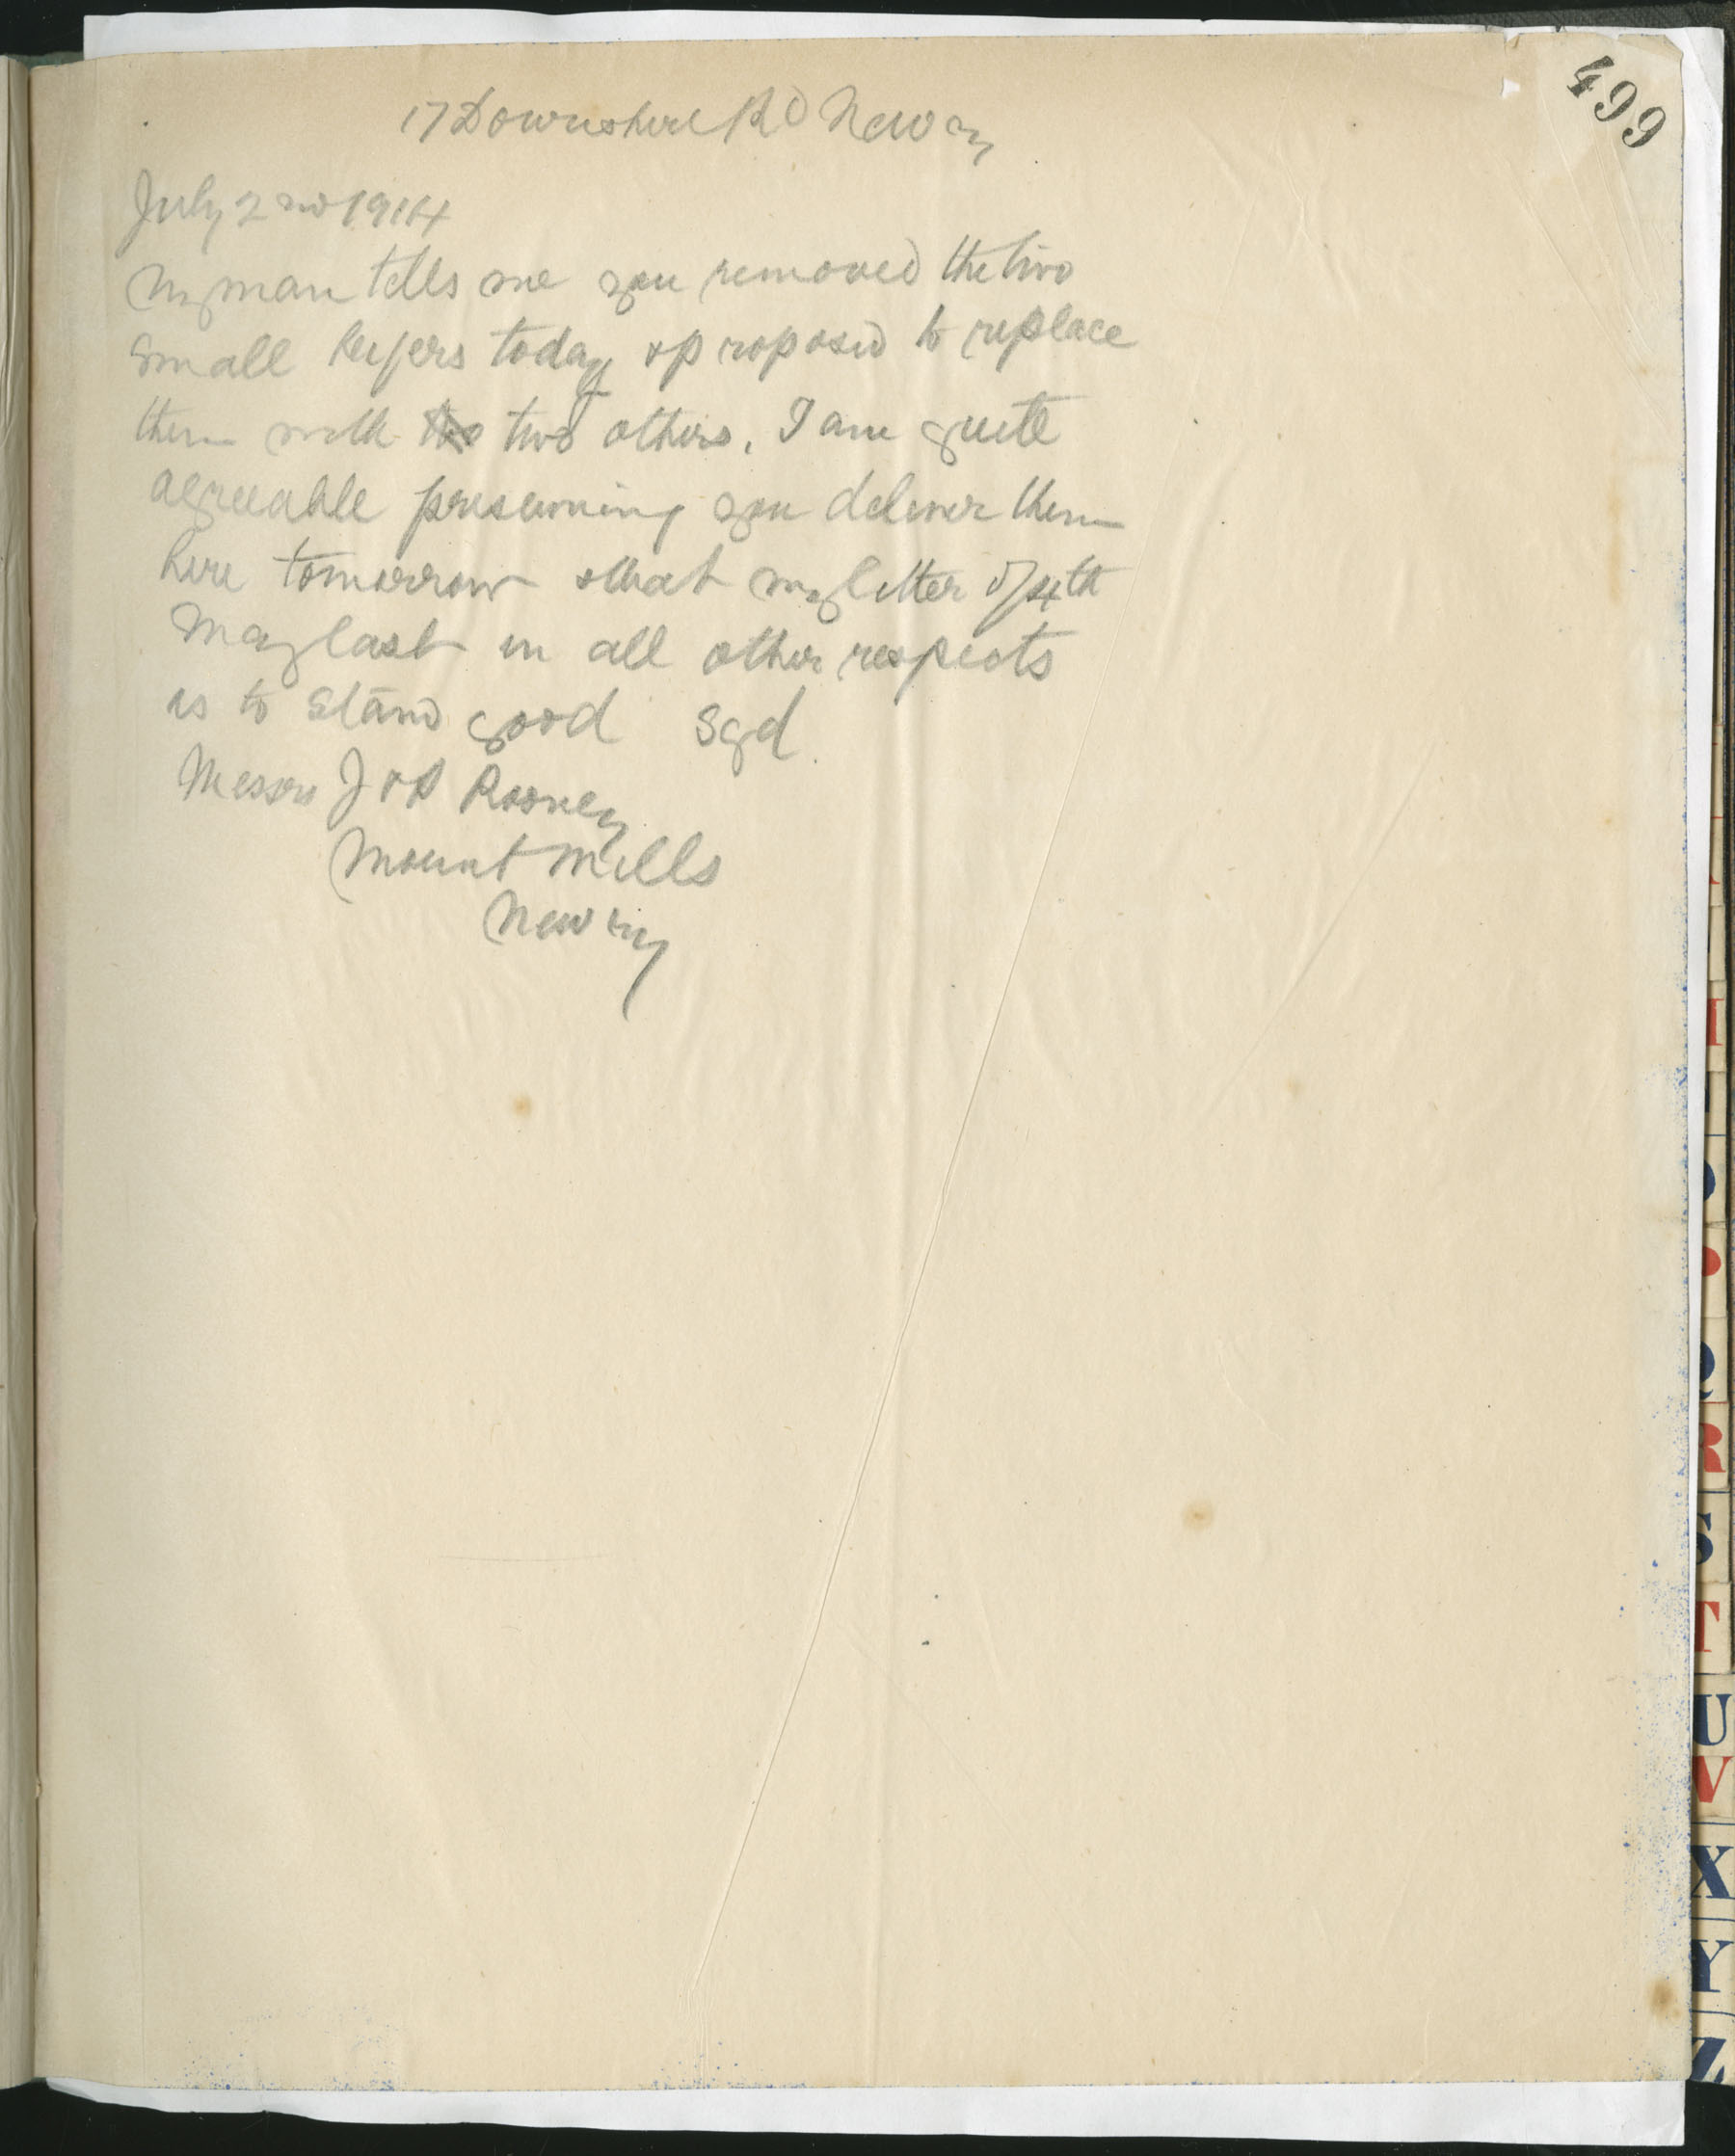 499
17 Downshire Rd Newry
July 2nd 1914
My man tells me you removed the two
small heifers today & proposed to replace
them with two others. I am quite
agreeable presuming you deliver them
here tomorrow & that my letter of 4th
May last in all other respects
is to stand good Sgd
Messrs J & P Rooney
Mount Mills
Newry
R
S
T
U
V
X
Y
Z